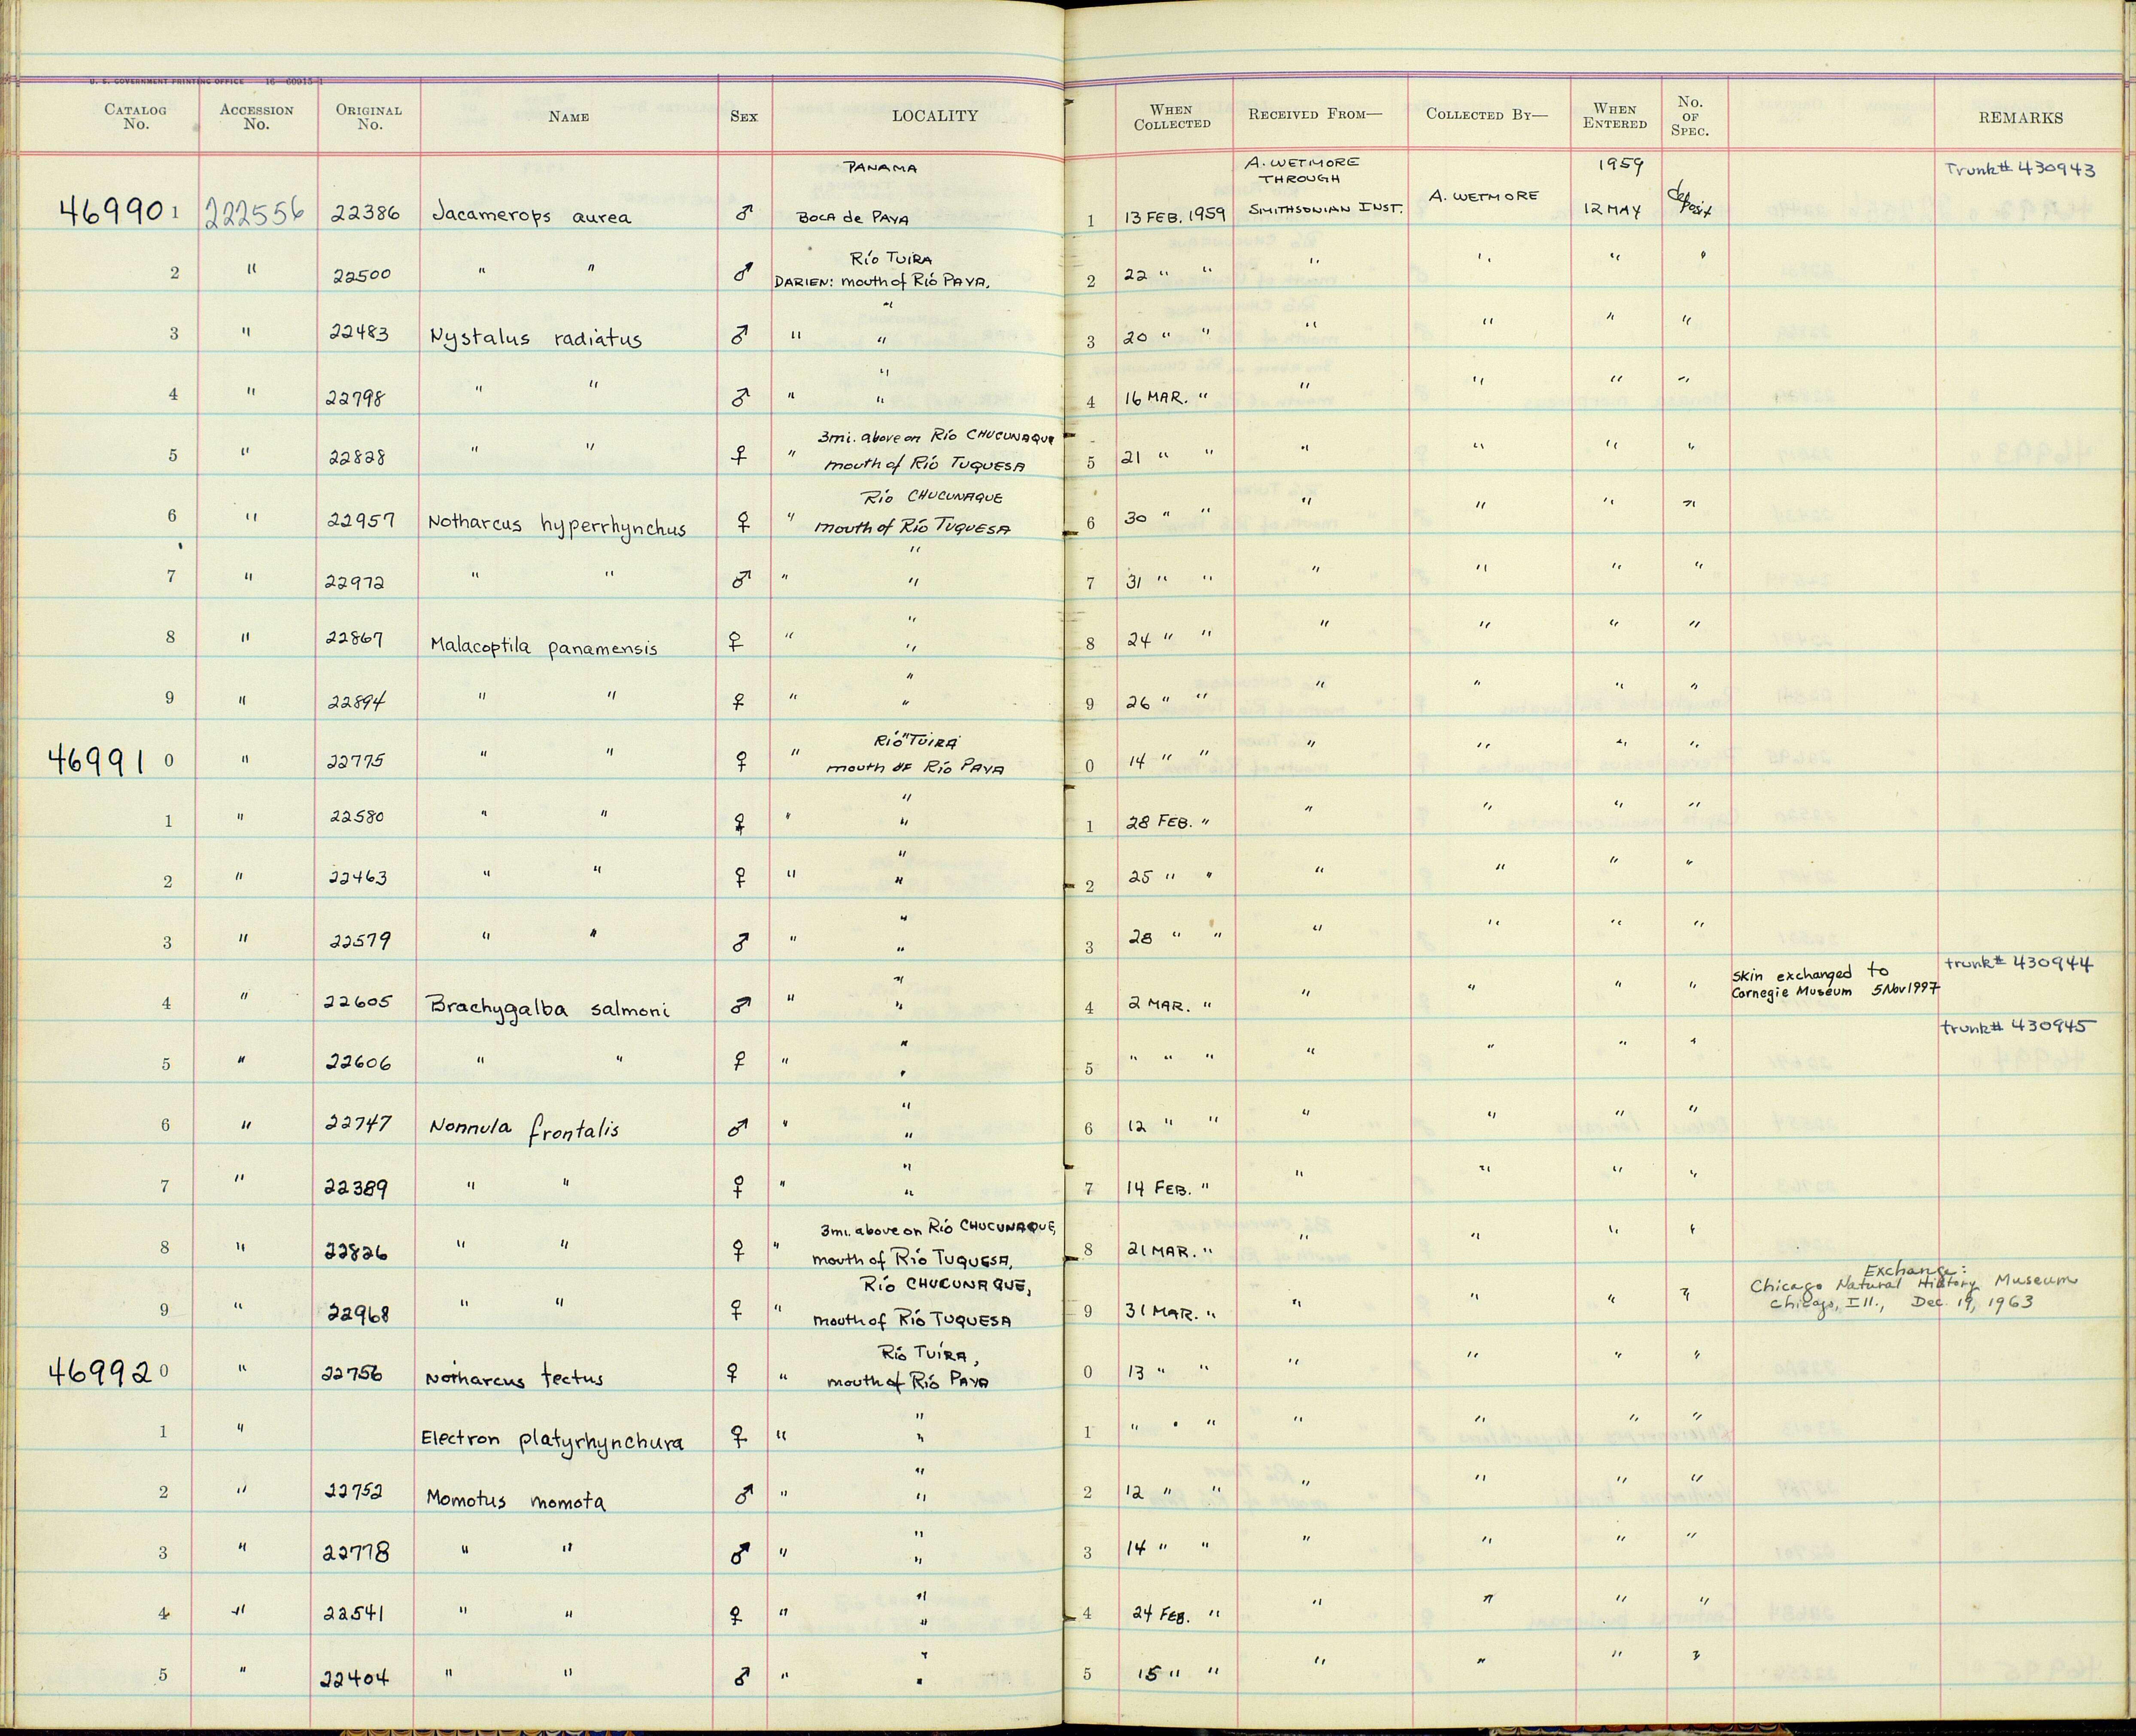 U. S. GOVERNMENT PRINTING OFFICE 16—60915-1
CATALOG No. ACCESSION No. ORIGINAL No. NAME SEX LOCALITY WHEN COLLECTED RECEIVED FROM— COLLECTED BY— WHEN ENTERED No. OF SPEC. REMARKS
PANAMA A. WETMORE THROUGH 1959 Trunk# 430943
469901 222556 22386 Jacamerops aurea ♂ BOCA de PAYA 1 13 FEB. 1959 SMITHSONIAN INST. A. WETMORE 12 MAY deposit
Río TUIRA
2 " 22500 " " ♂ DARIEN: mouth of Río PAYA. 2 22 " " " " " "
"
3 " 22483 Nystalus radiatus ♂ " " 3 20 " " " " " "
"
4 " 22798 " " ♂ " " 4 16 MAR. " " " " "
3mi. above on Río CHUCUNAQUE
5 " 22828 " " ♀ " mouth of Río TUQUESA 5 21 " " " " " "
Río CHUCUNAQUE
6 " 22957 Notharcus hyperrhynchus ♀ " mouth of Río TUQUESA 6 30 " " " " " "
"
7 " 22972 " " ♂ " " 7 31 " " " " " "
"
8 " 22867 Malacoptila panamensis ♀ " " 8 24 " " " " " "
"
9 " 22894 " " ♀ " " 9 26 " " " " " "
Río "TUIRA
469910 " 22775 " " ♀ " mouth of Río PAYA 0 14 " " " " " "
"
1 " 22580 " " ♀ " " 1 28 FEB. " " " " "
"
2 " 22463 " " ♀ " " 2 25 " " " " " "
"
3 " 22579 " " ♂ " " 3 28 " " " " " "
" Skin exchanged to trunk# 430944
4 " 22605 Brachygalba salmoni ♂ " " 4 2 MAR. " " " " " Carnegie Museum 5Nov1997
" trunk# 430945
5 " 22606 " " ♀ " " 5 " " " " " " "
"
6 " 22747 Nonnula frontalis ♂ " " 6 12 " " " " " "
"
7 " 22389 " " ♀ " " 7 14 FEB. " " " " "
3mi. above on Río CHUCUNAQUE,
8 " 22826 " " ♀ " mouth of Río TUQUESA, 8 21 MAR. " " " " "
Río CHUCUNAQUE, Exchange:
Chicago Natural History Museum
9 " 22968 " " ♀ " mouth of Río TUQUESA 9 31 MAR. " " " " " Chicago, Ill., Dec. 19, 1963
Río TUIRA,
469920 " 22756 Notharcus tectus ♀ " mouth of Río PAYA 0 13 " " " " " "
"
1 " Electron platyrhynchura ♀ " " 1 " " " " " " "
"
2 " 22752 Momotus momota ♂ " " 2 12 " " " " " "
"
3 " 22778 " " ♂ " " 3 14 " " " " " "
"
4 " 22541 " " ♀ " " 4 24 FEB. " " " " "
"
5 " 22404 " " ♂ " " 5 15 " " " " " "